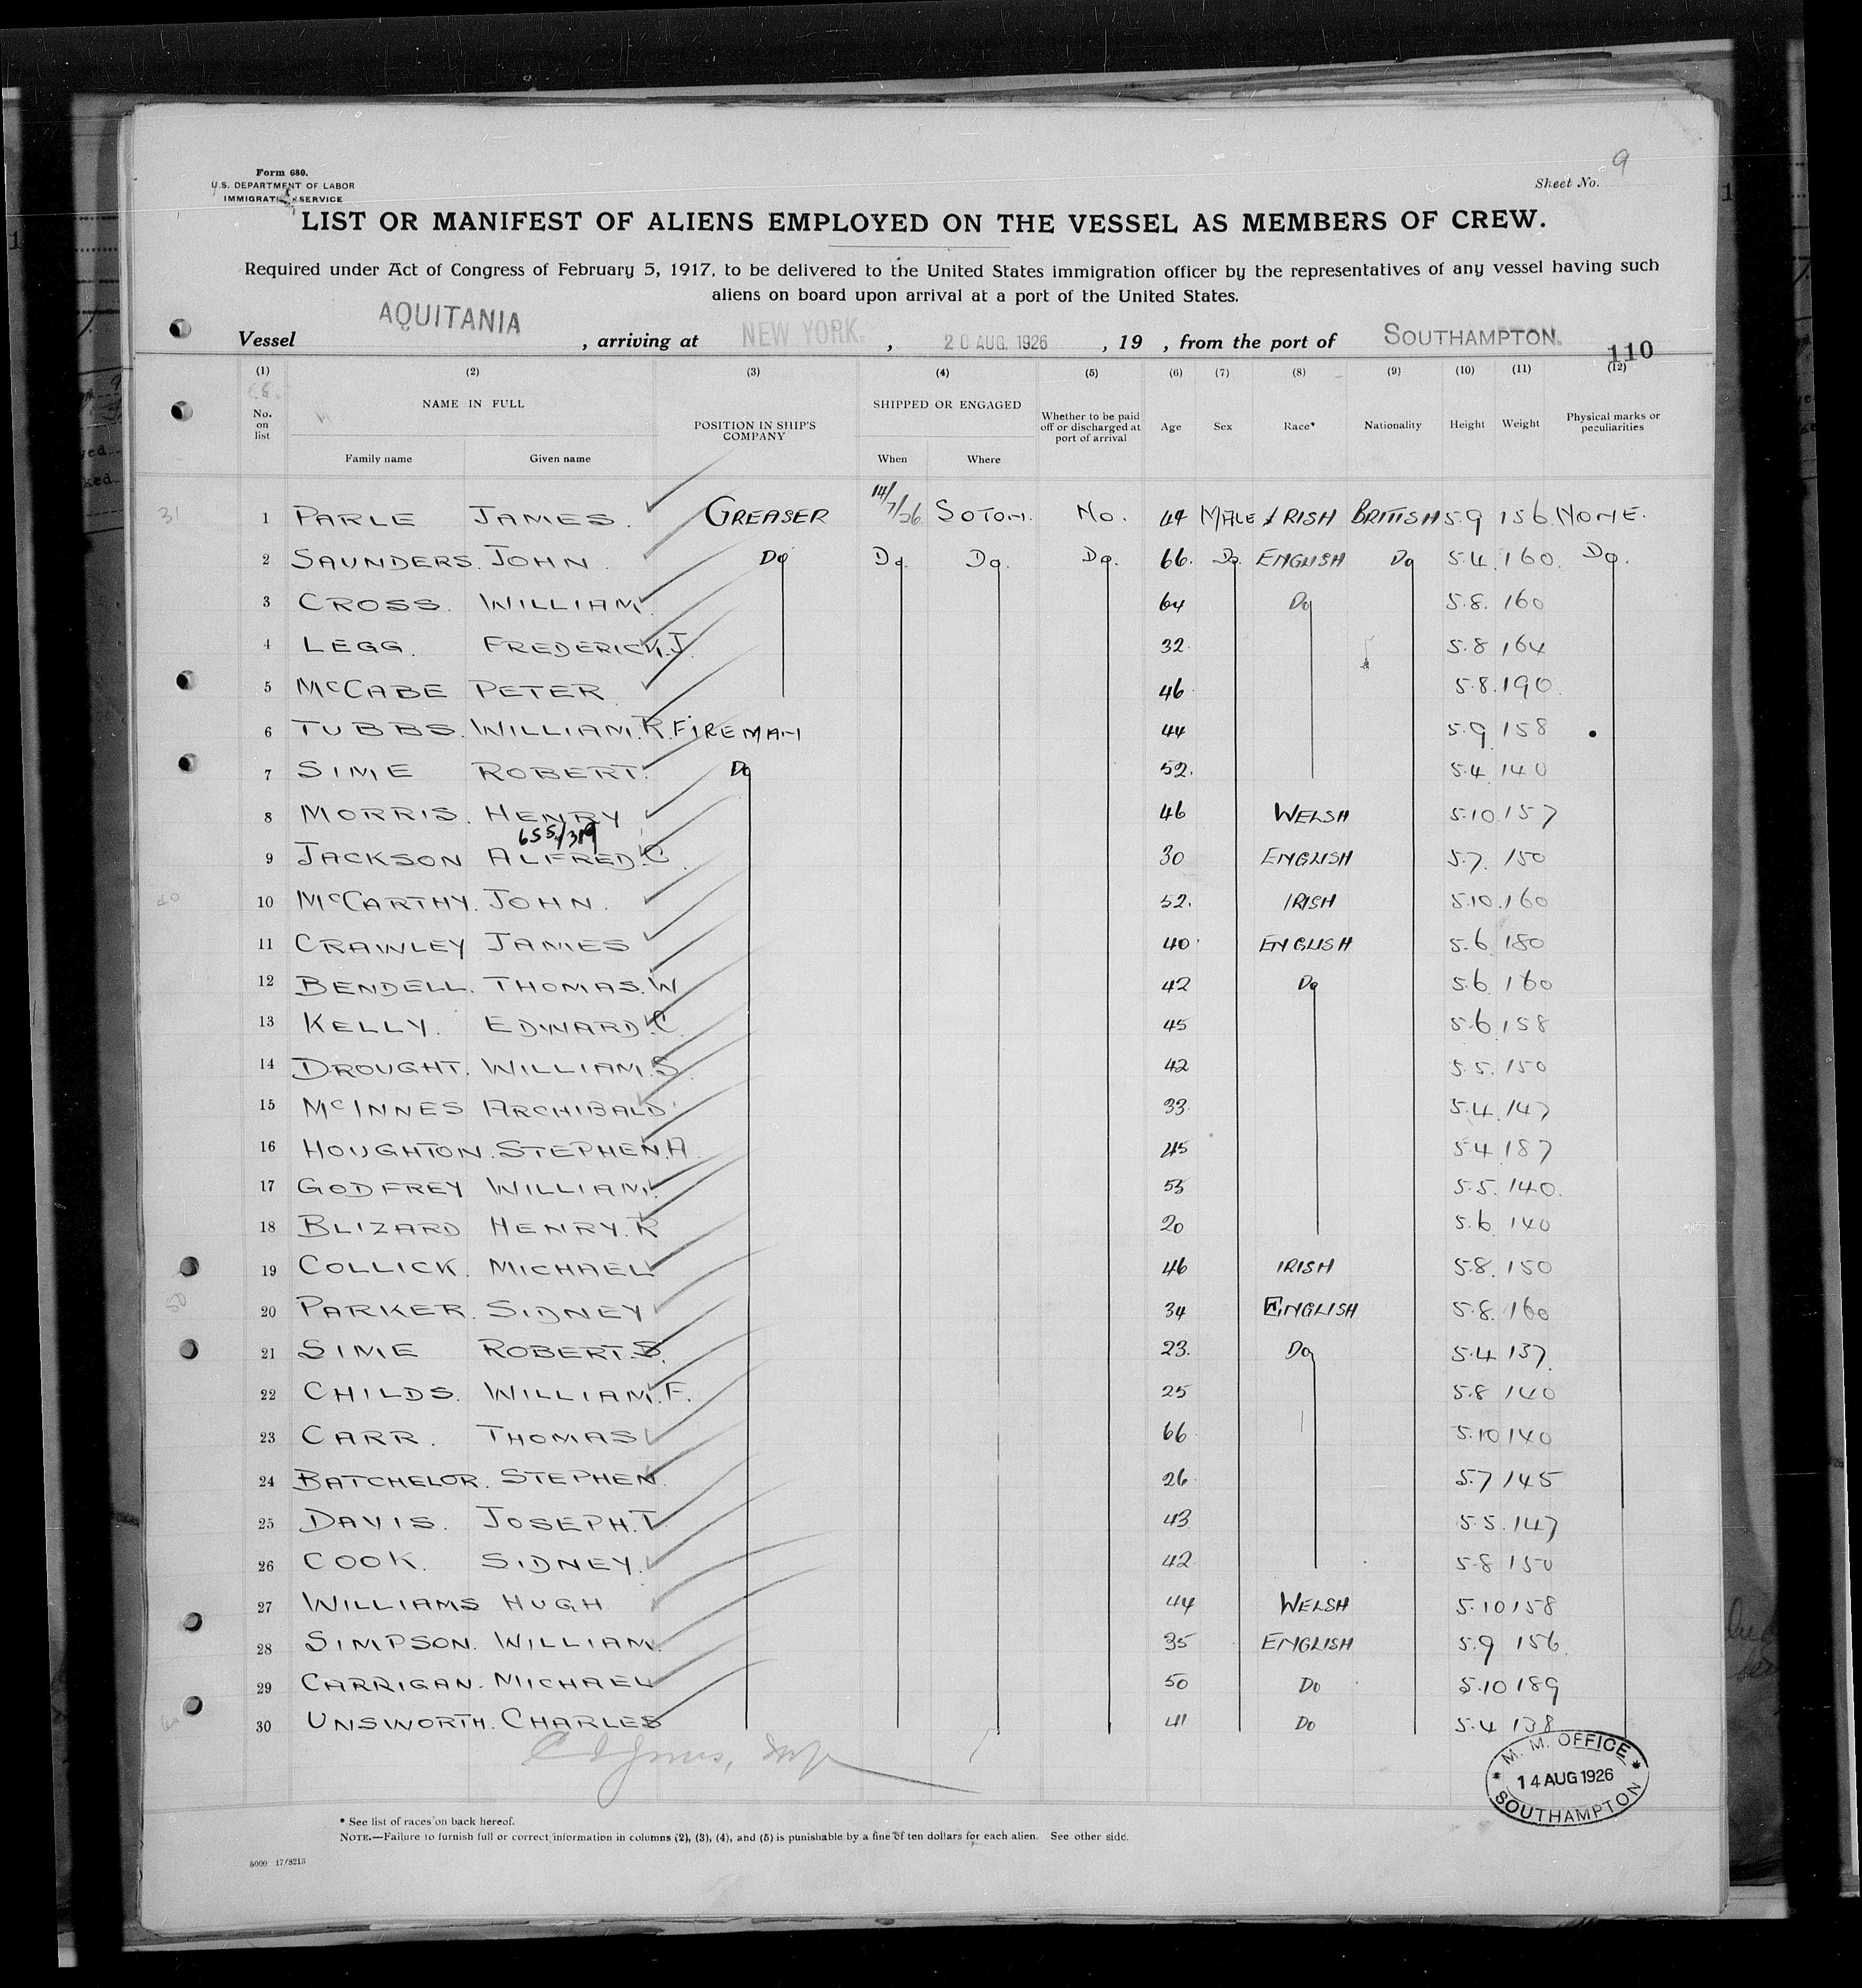 9
Form 680.
Sheet No.
U.S. DEPARTMENT OF LABOR
IMMIGRATION SERVICE
LIST OR MANIFEST OF ALIENS EMPLOYED ON THE VESSEL AS MEMBERS OF CREW.
Required under Act of Congress of February 5, 1917, to be delivered to the United States immigration officer by the representatives of any vessel having such
aliens on board upon arrival at a port of the United States.
Vessel AQUITANIA , arriving at NEW YORK. , 20 AUG. 1926 , 19 , from the port of SOUTHAMPTON.
110
(1) (2) (3) (4) (5) (6) (7) (8) (9) (10) (11) (12)
No. on list NAME IN FULL Family name Given name POSITION IN SHIP'S COMPANY SHIPPED OR ENGAGED When Where Whether to be paid off or discharged at port of arrival Age Sex Race* Nationality Height Weight Physical marks or peculiarities
31 1 PARLE JAMES. GREASER 14/7/26 SOTON. No. 44 MALE IRISH BRITISH 5.9 156 NONE.
2 SAUNDERS. JOHN. Do Do Do. Do. 66. Do. ENGLISH Do 5.4. 160. Do.
3 CROSS. WILLIAM. 64 Do 5.8. 160
4 LEGG. FREDERICK.J. 32. 5.8 164
5 McCABE PETER 46. 5.8. 190.
6 TUBBS. WILLIAM.R. FIREMAN 44 5.9 158
7 SIME ROBERT. Do 52. 5.4 140
8 MORRIS. HENRY 46 WELSH 5.10. 157
655/319
9 JACKSON ALFRED.C. 30 ENGLISH 5.7. 150
40 10 McCARTHY. JOHN. 52. IRISH 5.10. 160
11 CRAWLEY JAMES 40. ENGLISH 5.6 180
12 BENDELL. THOMAS.W 42 Do 5.6. 160
13 KELLY. EDWARD.C. 45 5.6 158
14 DROUGHT. WILLIAM.S. 42 5.5. 150
15 McINNES ARCHIBALD. 33. 5.4. 147
16 HOUGHTON. STEPHEN.A. 45 5.4 187
17 GODFREY WILLIAM. 53 5.5. 140.
18 BLIZARD HENRY.R 20 5.6 140
19 COLLICK. MICHAEL 46 IRISH 5.8. 150
50 20 PARKER. SIDNEY 34 ENGLISH 5.8. 160
21 SIME ROBERT.S. 23. Do 5.4 137.
22 CHILDS. WILLIAM.F. 25 5.8 140
23 CARR. THOMAS 66 5.10 140
24 BATCHELOR. STEPHEN. 26 5.7 145
25 DAVIS. JOSEPH.T. 43 5.5. 147
26 COOK. SIDNEY. 42 5.8 150
27 WILLIAMS HUGH 44 WELSH 5.10 158
28 SIMPSON. WILLIAM. 35 ENGLISH 5.9 156
29 CARRIGAN. MICHAEL 50 Do 5.10 189
60 30 UNSWORTH. CHARLES 41 Do 5.4 138
M. M. OFFICE
14 AUG 1926
SOUTHAMPTON
* See list of races on back hereof.
NOTE.—Failure to furnish full or correct information in columns (2), (3), (4), and (5) is punishable by a fine of ten dollars for each alien. See other side.
5000 17/8213